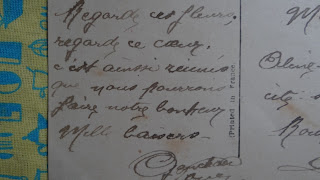 Regarde ces fleurs,
regarde ce cœur,
c'est ainsi réunis
que nous pourrons
faire notre bonheur
Mille baisers
Printed in France